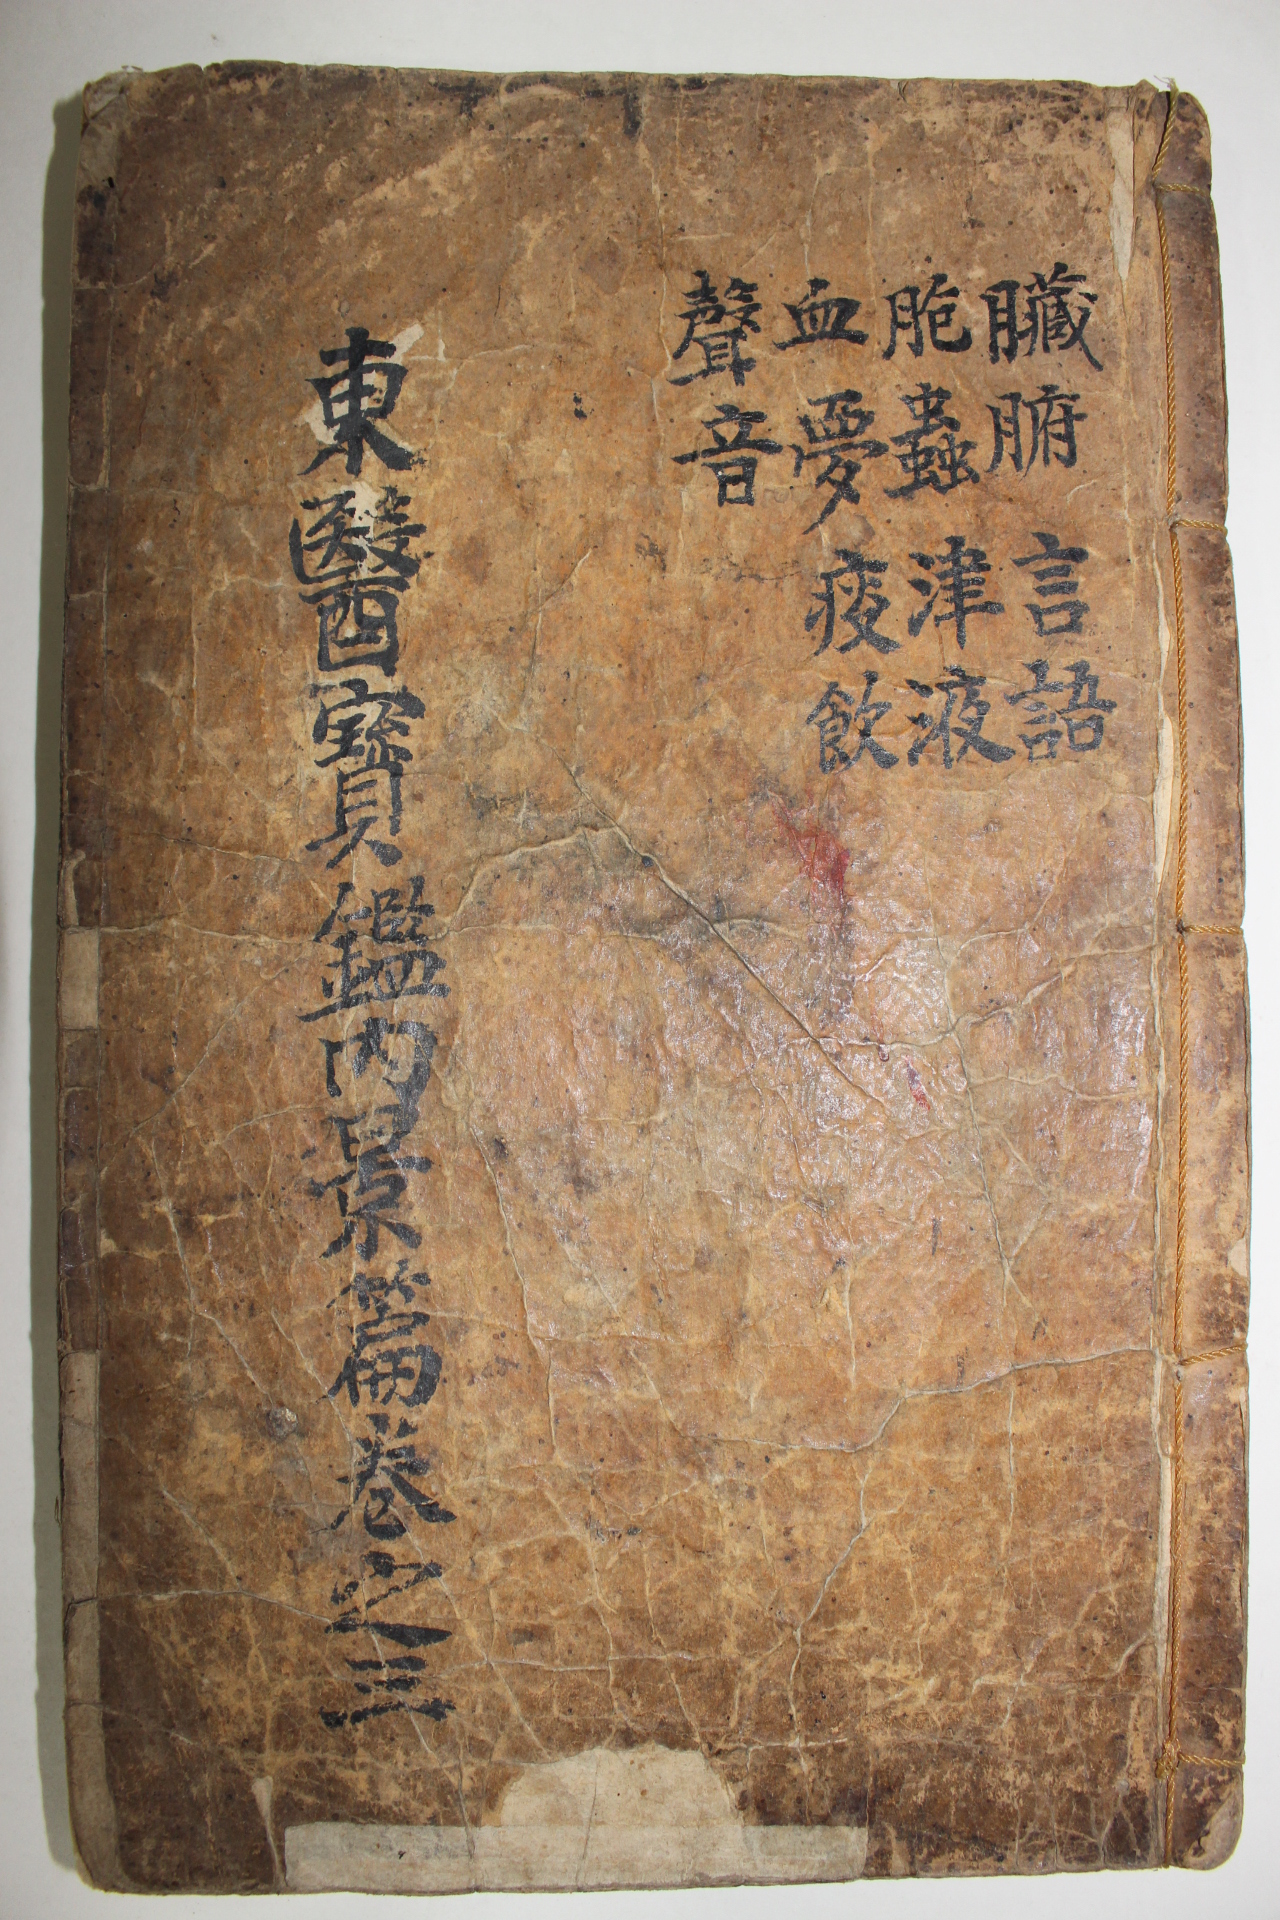 臟腑 言語
胞蟲 津液
血夢 痰飮
聲音
東醫寶鑑內景篇卷之三